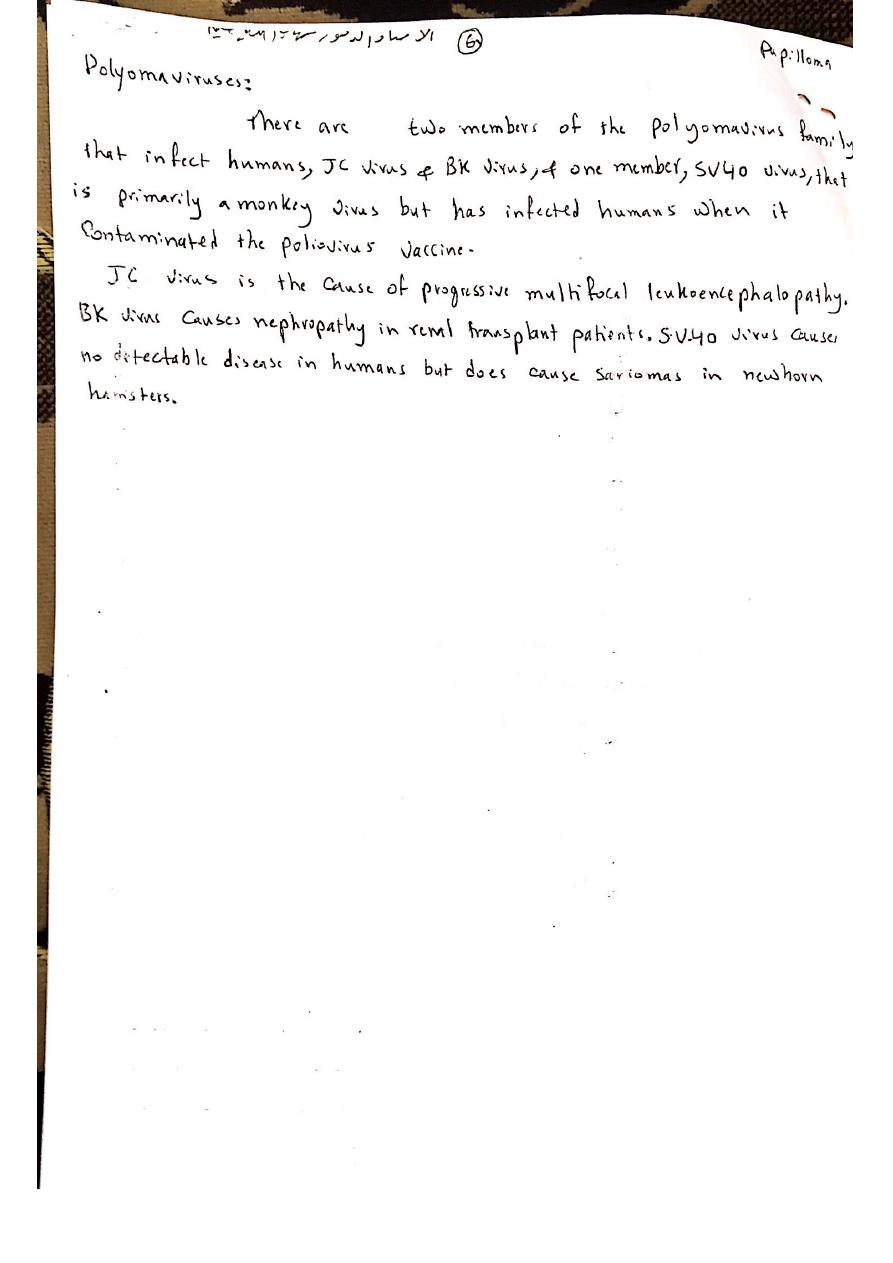 6
Papilloma
Polyomaviruses:
There are two members of the polyomavirus family
that infect humans, JC virus & BK virus, & one member, SV40 virus, that
is primarily a monkey virus but has infected humans when it
Contaminated the poliovirus vaccine.
JC virus is the cause of progressive multifocal leukoencephalopathy.
BK virus causes nephropathy in renal transplant patients. SV40 virus causes
no detectable disease in humans but does cause sarcomas in newborn
hamsters.